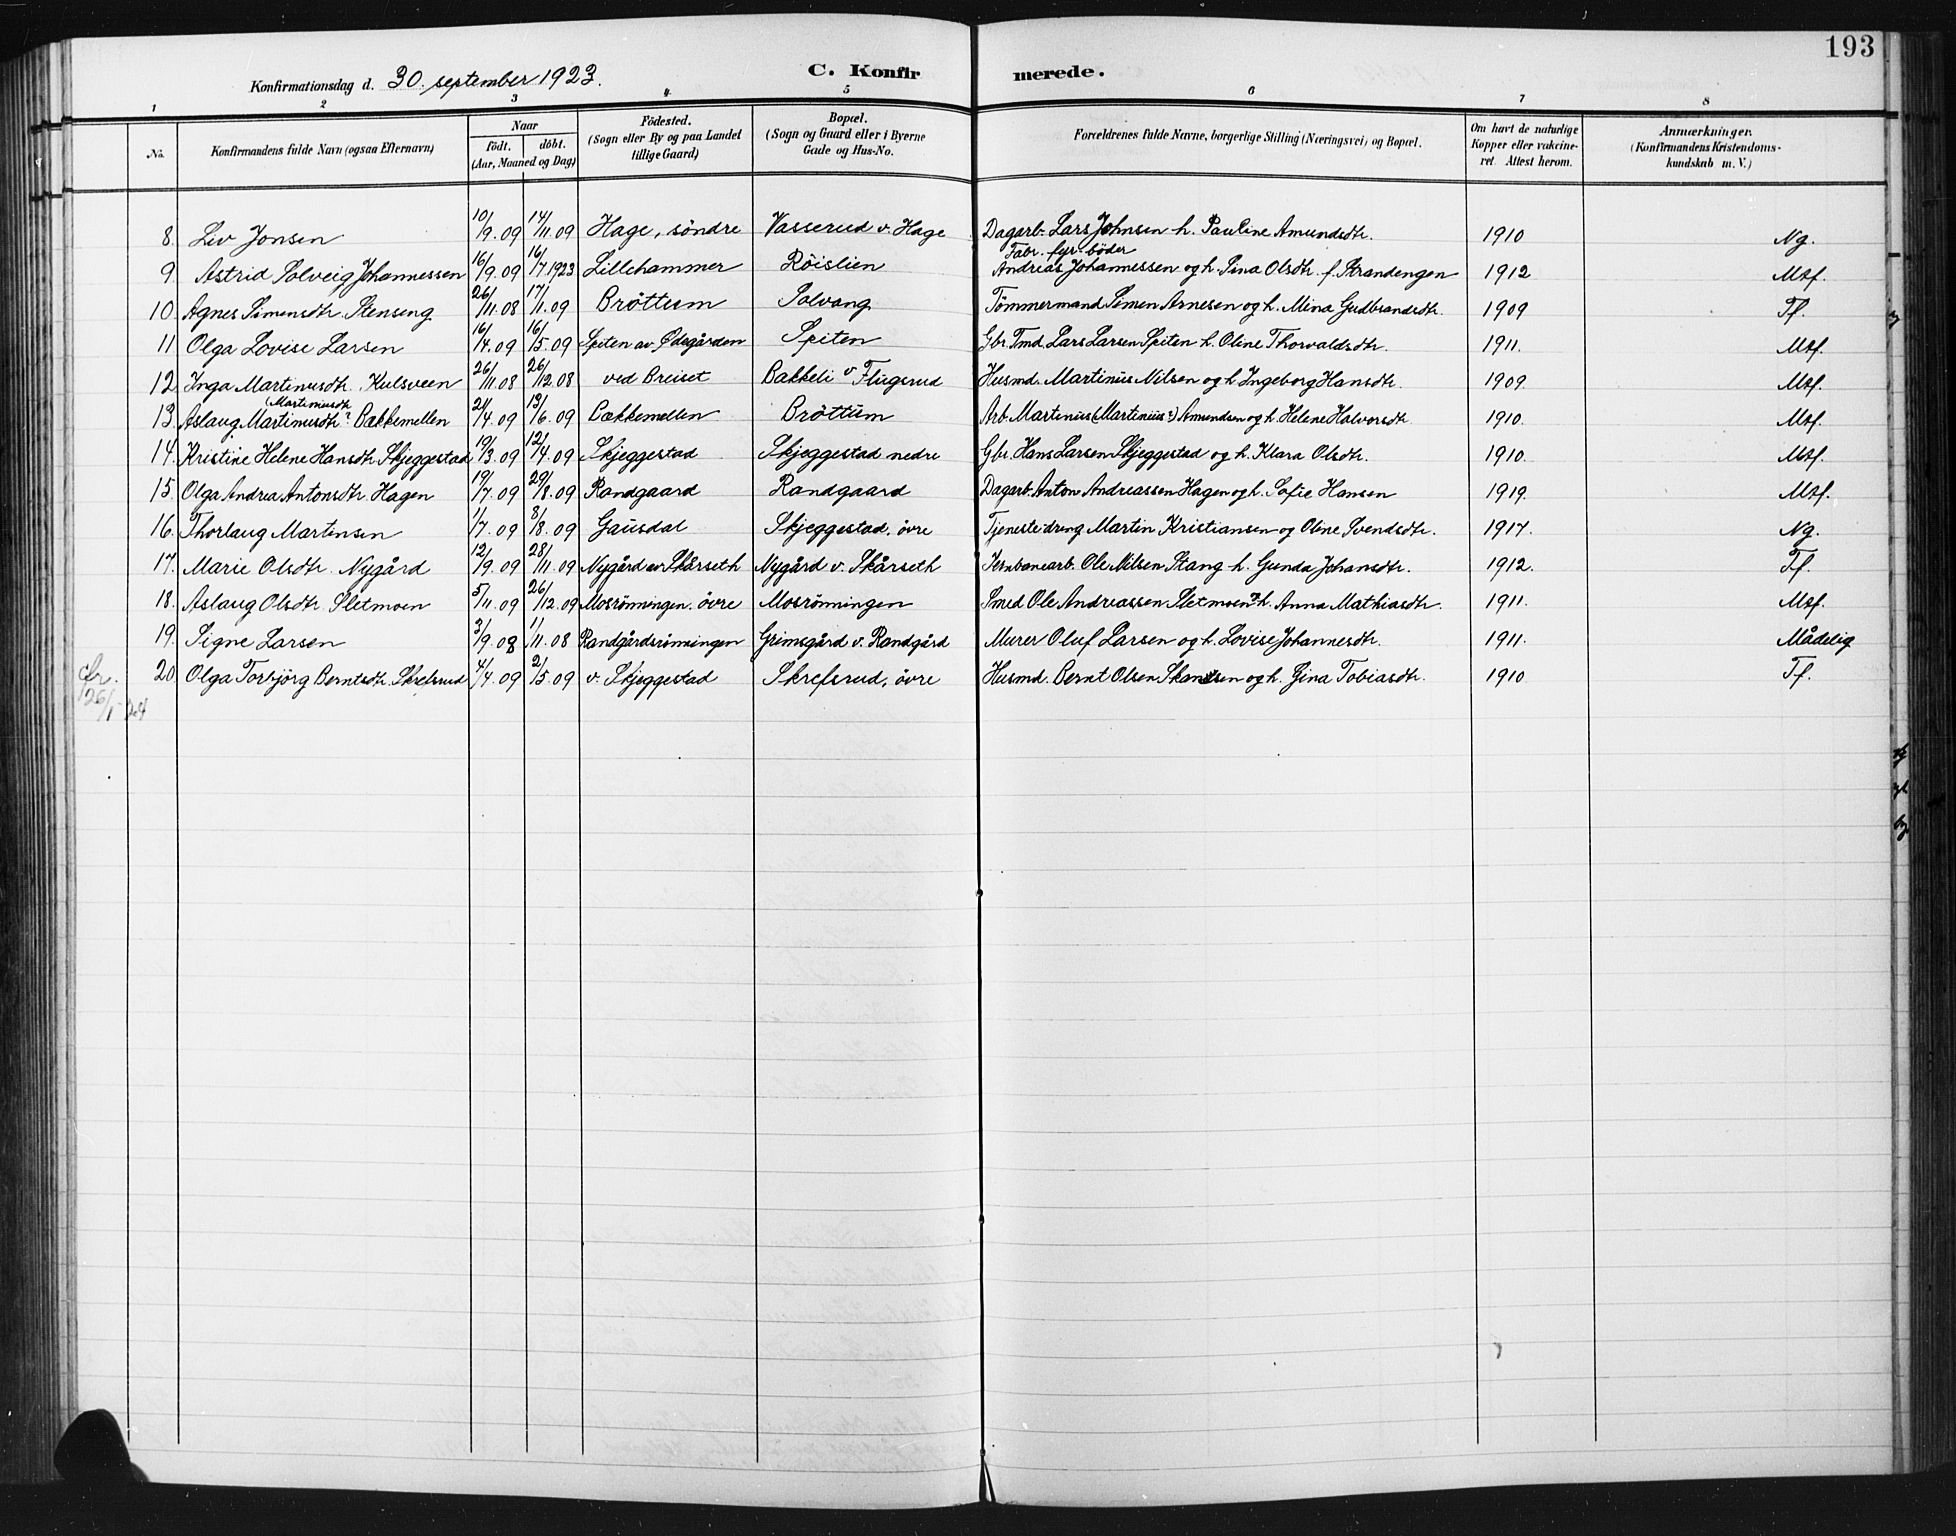 193
Konfirmationsdag d. 30. september 1923. C. Konfirmerede.
1 2 3 4 5 6 7 8
No. Konfirmandens fulde Navn (ogsaa Efternavn) Naar födt. döbt. (Aar, Maaned og Dag) Födested. (Sogn eller By og paa Landet tillige Gaard) Bopæl. (Sogn og Gaard eller i Byerne Gade og Hus-No. Forældrenes fulde Navne, borgerlige Stilling (Næringsvei) og Bopæl. Om havt de naturlige Kopper eller vakcineret. Attest herom. Anmærkninger. (Konfirmandens Kristendomskundskab m. V.)
8. Liv Jonsen 10/9.09 14/11.09 Hage, söndre Vasserud v. Hage Dagarb. Lars Johnsen h. Pauline Amundsdtr. 1910 Ng.
9 Astrid Solveig Johannessen 16/9.09 16/7 1923 Lillehammer Röislien Fabr. fyr-böder Andreas Johannessen og h. Sina Olsdtr. f. Strandengen 1912 Mtf.
10. Agnes Simensdtr. Stenseng 26/11.08 17/1.09 Bröttum Solvang Tömmermand Simen Arnesen og h. Mina Gudbrandsdtr. 1909 Tf.
11 Olga Lovise Larsen 16/4.09 16/5.09 Spiten av Ödegården Spiten Gbr. Tmd. Lars Larsen Spiten h. Oline Thorvaldsdtr. 1911. Mtf.
12 Inga Martinusdtr. Kulsveen 26/11.08 26/12.08 ved Breiset Bakkeli v Flugsrud Husmd. Martinus Nilsen og h Ingeborg Hansdtr. 1909. Mtf.
13. Aslaug Martinusdtr? (Martiniusdtr Bækkemellen 21/4.09 13/6.09 Bækkemellen Bröttum Arb. Martinus (Martinius?) Amundsen og h. Helene Halvorsdtr 1910. Mtf.
14. Kristine Helene Hansdtr Skjeggestad 19/3.09 12/4.09 Skjeggestad Skjeggestad nedre Gbr. Hans Larsen Skjeggestad og h. Klara Olsdtr. 1910. Mtf.
15. Olga Andrea Antonsdtr. Hagen 19/7.09 29/8.09 Randgaard Randgaard Dagarb. Anton Andreassen Hagen og h. Sofie Hansen 1919. Mtf.
16. Thorlaug Martinsen 1/7.09 8/8.09 Gausdal Skjeggestad, övre Tjenestedreng Martin Kristiansen og Oline Svendsdtr. 1917. Ng.
17. Marie Olsdtr. Nygård 12/9.09 28/11.09 Nygård av Skårseth Nygård v. Skårseth Jernbanearb. Ole Nilsen Stang h. Gunda Johansdtr. 1912. Tf.
18. Aslaug Olsdtr. Sletmoen 5/11.09 26/12.09 Mosrönningen. övre Mosrönningen Smed Ole Andreassen Sletmoen h. Anna Mathiasdtr. 1911. Mtf.
19. Signe Larsen 3/9.08 1/11.08 Randgårdsrönningen Grimsgård v. Randgård Murer Oluf Larsen og h. Lovise Johannesdtr. 1911. Mådelig
20 Olga Torbjörg Berntsdtr. Skrefsrud 4/4.09 2/5.09 v. Skjeggestad Skrefsrud, övre Husmd. Bernt Olsen og h. Gina Tobiasdtr. 1910 Tf.
26/1-24